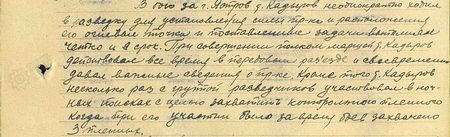 В боях за г. Ятров т. Кадыров неоднократно ходил
в разведку для установления силы пр-ка и расположения
его огневых точек и поставленные задачи выполнял
четко и в срок. При совершении полком маршей т. Кадыров
действовал все время в передовом разъезде и своевременно
давал важные сведения о пр-ке. Кроме того т. Кадыров
несколько раз с группой разведчиков участвовал в ноч-
ных поисках с целью захватить контрольного пленного
когда при его участии было за время боев захвачено
3 пленных.